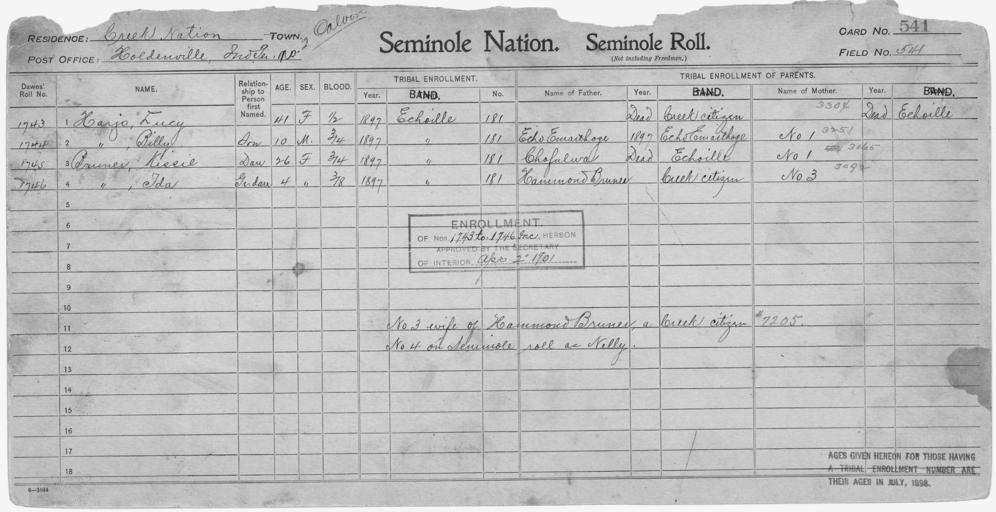 RESIDENCE: Creek Nation TOWN, Calvin
POST OFFICE: Holdenville, Ind. Ter.
Seminole Nation. Seminole Roll.
(Not including Freedmen.)
CARD NO. 541
FIELD NO. 541
Dawes' Roll No. NAME. Relationship to Person first Named. AGE. SEX. BLOOD. TRIBAL ENROLLMENT. TRIBAL ENROLLMENT OF PARENTS.
Year. BAND. No. Name of Father. Year. BAND. Name of Mother. Year. BAND.
1743 1 Harjo, Lucy 41 F 1/2 1897 Echoille 181 Dead Creek citizen 3304 Dead Echoille
1744 2 " , Billy Son 10 M. 3/4 1897 " 181 Echo Emarthoge 1897 Echo Emarthoge No 1 3251
1745 3 Bruner, Kissie Dau 26 F 3/4 1897 " 181 Chofulwa Dead Echoille No 1 3065
1746 4 " , Ida Gr dau 4 " 3/8 1897 " 181 Hammond Bruner Creek citizen No 3 3092
5
6
7
8
9
10
11 No 3 wife of Hammond Bruner, a Creek citizen #7205.
12 No 4 on Seminole roll as Nelly.
13
14
15
16
17
18
ENROLLMENT.
OF Nos. 1743 to 1746 Inc. HEREON
APPROVED BY THE SECRETARY
OF INTERIOR. Apr 2 1901
AGES GIVEN HEREON FOR THOSE HAVING
A TRIBAL ENROLLMENT NUMBER ARE
THEIR AGES IN JULY, 1898.